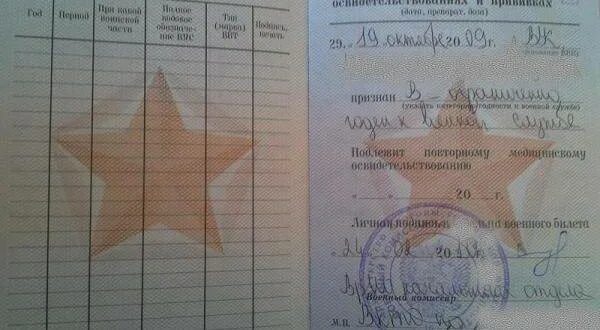 Год
Период
При какой воинской части
Полное кодовое обозначение ВУС
Тип (марка) ВВТ
Подпись, печать
освидетельствованиях и прививках
(дата, препарат, доза)
29. « 19 » октября 2009 г. ВК
признан В - ограничено
(указать категорию годности к военной службе)
годен к военной службе
Подлежит повторному медицинскому
освидетельствованию
20 г.
Личная подпись военного билета
« 24 » 02 20
начальника отдела
Военный комиссар
М.П.